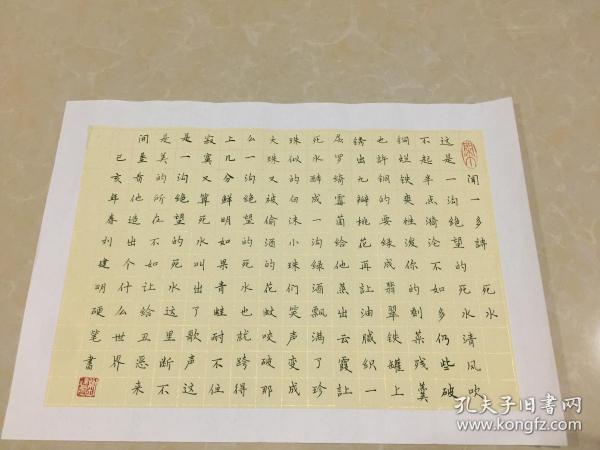 闻一多詩 死水
这是一沟绝望的死水清风吹
不起半点漪沦不如多仍些破
铜烂铁爽性泼你的剩菜残羹
也許铜的要緑成翡翠铁罐上
锈出几瓣桃花再让油腻织一
层罗绮霉菌给他蒸出云霞让
死水酵成一沟绿酒飘满了珍
珠似的白沫小珠们笑声变成
大珠又被偷酒的花蚊咬破那
么一沟绝望的死水也就跨得
上几分鲜明如果青蛙耐不住
寂寞又算死水叫出了歌声这
是一沟绝望的死水这里断不
是美的所在不如让给丑恶来
间垦看他造出个什么世界
己亥年春利建明硬笔書
孔夫子旧書网
www.kongfz.com